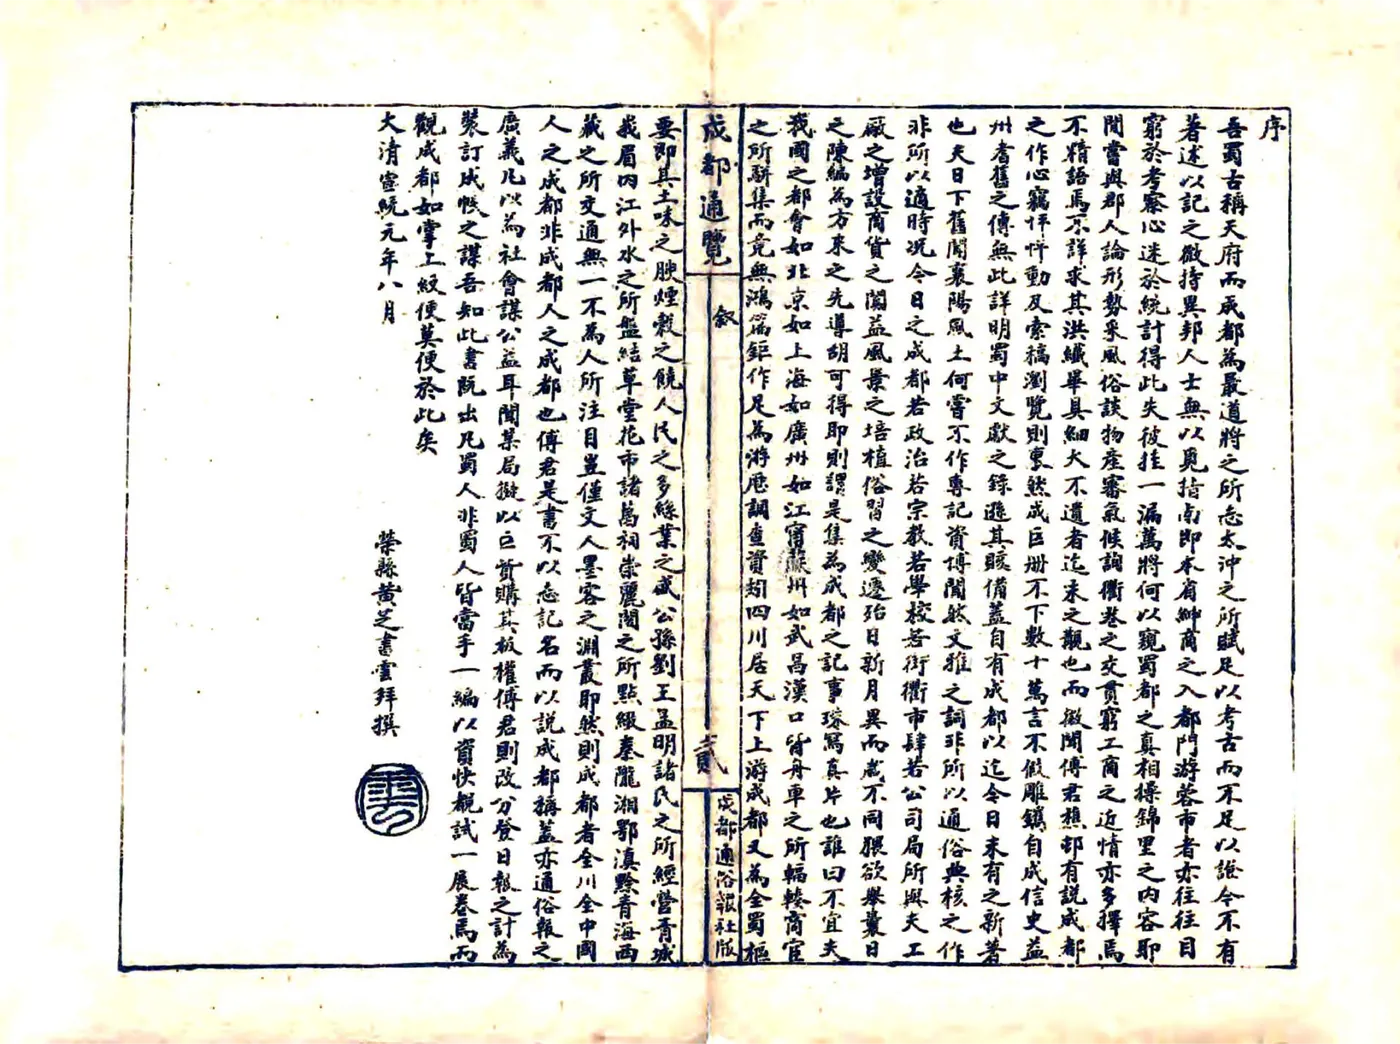 序
吾蜀古稱天府而成都為最道將之所志太沖之所賦足以考古而不足以證今不有
著述以記之微特異邦人士無以覓指南即本省紳商之入都門游蓉市者亦往往目
窮於考察心迷於統計得此失彼挂一漏萬將何以窺蜀都之真相攬錦里之內容耶
閒嘗與郡人論形勢采風俗談物產審氣候詢衢巷之交貫窮工商之近情亦多擇焉
不精語焉不詳求其洪纖畢具細大不遺者迄未之覯也而微聞傅君樵邨有說成都
之作心竊怦怦動及索稿瀏覽則裒然成巨冊不下數十萬言不假雕鐫自成信史益
州耆舊之傳無此詳明蜀中文獻之錄遜其賅備蓋自有成都以迄今日未有之新著
也夫日下舊聞襄陽風土何嘗不作專記資博聞然文雅之詞非所以通俗典核之作
非所以適時况今日之成都若政治若宗教若學校若街衢市肆若公司局所與夫工
廠之增設商貨之闐益風景之培植俗習之變遷殆日新月異而歲不同猥欲舉曩日
之陳編為方來之先導胡可得耶則謂是集為成都之記事珠寫真片也誰曰不宜夫
我國之都會如北京如上海如廣州如江甯蘇州如武昌漢口皆舟車之所輻輳商宦
之所駢集而竟無鴻篇鉅作足為游歷調查資矧四川居天下上游成都又為全蜀樞
成都通覽
叙
貳
成都通俗報社版
要即其土味之腴煙穀之饒人民之多絲業之盛公孫劉王孟明諸氏之所經營青城
我眉內江外水之所盤結草堂花市諸葛祠崇麗閣之所點綴秦隴湘鄂滇黔青海西
藏之所交通無一不為人所注目豈僅文人墨客之淵叢耶然則成都者全川全中國
人之成都非成都人之成都也傅君是書不以志記名而以說成都稱蓋亦通俗報之
廣義凡以為社會謀公益耳聞某局擬以巨資購其板權傅君則改分登日報之計為
裝訂成帙之謀吾知此書既出凡蜀人非蜀人皆當手一編以資快覩試一展卷焉而
觀成都如掌上紋便莫便於此矣
大清宣統元年八月
榮縣黃芝書雲拜撰